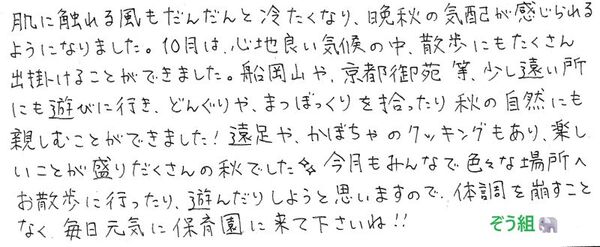 肌に触れる風もだんだんと冷たくなり、晩秋の気配が感じられる
ようになりました。10月は、心地良い気候の中、散歩にもたくさん
出掛けることができました。船岡山や、京都御苑 等、少し遠い所
にも遊びに行き、どんぐりや、まつぼっくりを拾ったり秋の自然にも
親しむことができました！遠足や、かぼちゃのクッキングもあり、楽し
いことが盛りだくさんの秋でした✨今月もみんなで色々な場所へ
お散歩に行ったり、遊んだりしようと思いますので、体調を崩すこと
なく、毎日元気に保育園に来て下さいね！！
ぞう組🐘